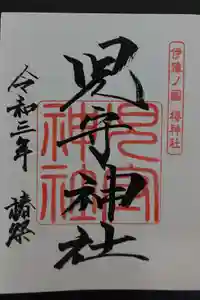 伊豫ノ國 椿神社
児守神社
児守神社
令和三年 椿祭